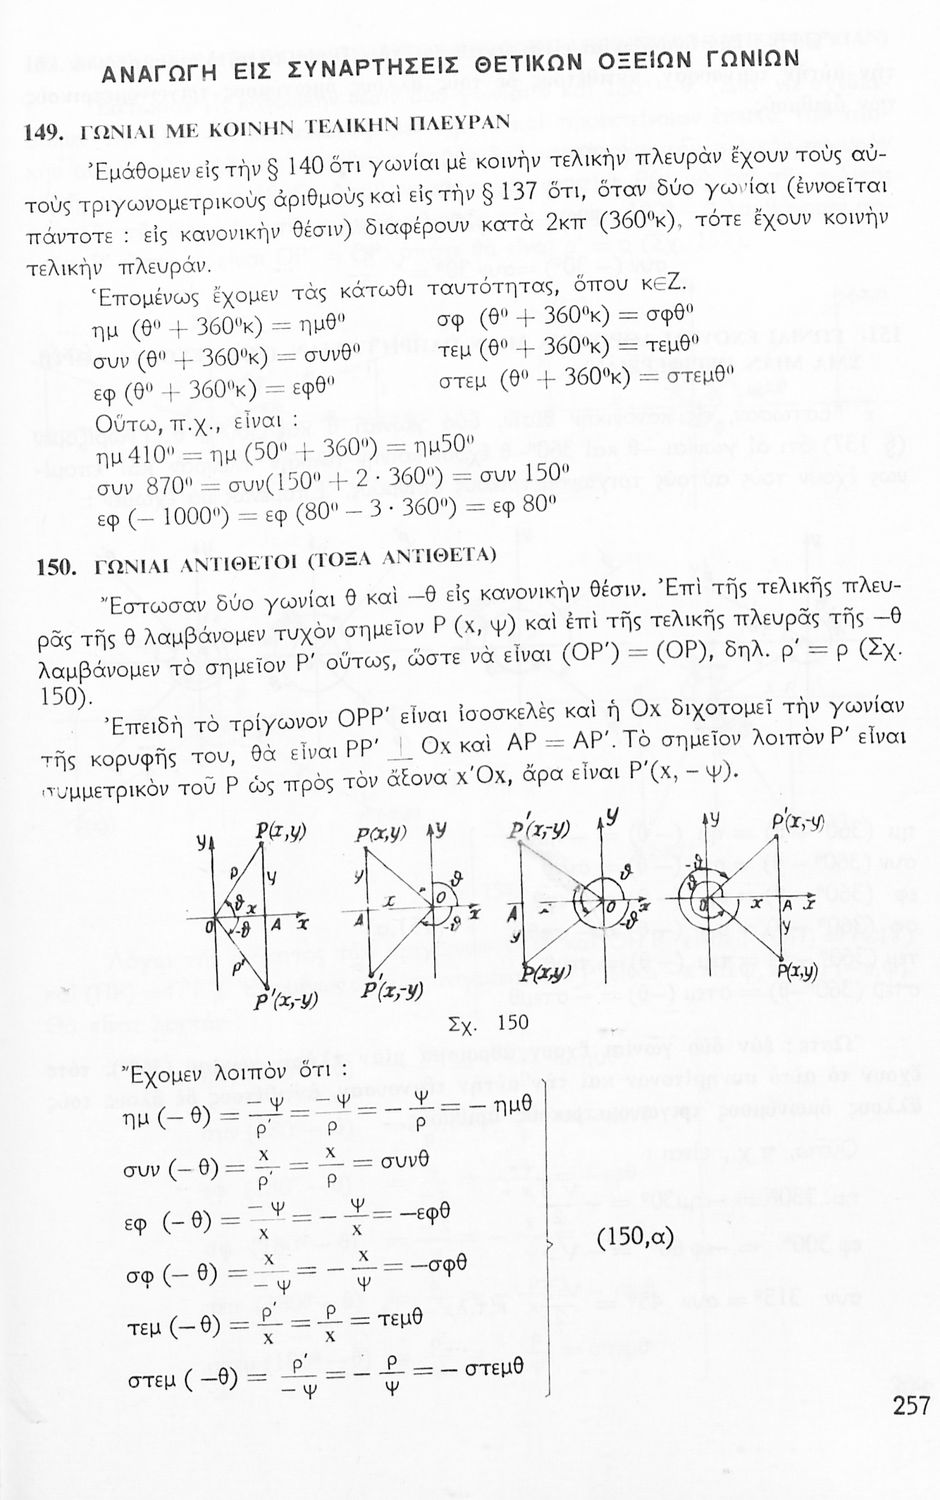 ΑΝΑΓΩΓΗ ΕΙΣ ΣΥΝΑΡΤΗΣΕΙΣ ΘΕΤΙΚΩΝ ΟΞΕΙΩΝ ΓΩΝΙΩΝ
149. ΓΩΝΙΑΙ ΜΕ ΚΟΙΝΗΝ ΤΕΛΙΚΗΝ ΠΛΕΥΡΑΝ
Ἐμάθομεν εἰς τὴν § 140 ὅτι γωνίαι μὲ κοινὴν τελικὴν πλευρὰν ἔχουν τοὺς αὐ-
τοὺς τριγωνομετρικοὺς ἀριθμοὺς καὶ εἰς τὴν § 137 ὅτι, ὅταν δύο γωνίαι (ἐννοεῖται
πάντοτε : εἰς κανονικὴν θέσιν) διαφέρουν κατὰ 2κπ (360⁰κ), τότε ἔχουν κοινὴν
τελικὴν πλευράν.
Ἑπομένως ἔχομεν τὰς κάτωθι ταυτότητας, ὅπου κεΖ.
ημ (θ⁰ + 360⁰κ) = ημθ⁰ σφ (θ⁰ + 360⁰κ) = σφθ⁰
συν (θ⁰ + 360⁰κ) = συνθ⁰ τεμ (θ⁰ + 360⁰κ) = τεμθ⁰
εφ (θ⁰ + 360⁰κ) = εφθ⁰ στεμ (θ⁰ + 360⁰κ) = στεμθ⁰
Οὕτω, π.χ., εἶναι :
ημ 410⁰ = ημ (50⁰ + 360⁰) = ημ50⁰
συν 870⁰ = συν(150⁰ + 2 · 360⁰) = συν 150⁰
εφ (— 1000⁰) = εφ (80⁰ — 3 · 360⁰) = εφ 80⁰
150. ΓΩΝΙΑΙ ΑΝΤΙΘΕΤΟΙ (ΤΟΞΑ ΑΝΤΙΘΕΤΑ)
Ἔστωσαν δύο γωνίαι θ καὶ —θ εἰς κανονικὴν θέσιν. Ἐπὶ τῆς τελικῆς πλευ-
ρᾶς τῆς θ λαμβάνομεν τυχὸν σημεῖον Ρ (x, ψ) καὶ ἐπὶ τῆς τελικῆς πλευρᾶς τῆς —θ
λαμβάνομεν τὸ σημεῖον Ρ' οὕτως, ὥστε νὰ εἶναι (ΟΡ') = (ΟΡ), δηλ. ρ' = ρ (Σχ.
150).
Ἐπειδὴ τὸ τρίγωνον ΟΡΡ' εἶναι ἰσοσκελὲς καὶ ἡ Οx διχοτομεῖ τὴν γωνίαν
τῆς κορυφῆς του, θὰ εἶναι ΡΡ' ⊥ Οx καὶ ΑΡ = ΑΡ'. Τὸ σημεῖον λοιπὸν Ρ' εἶναι
συμμετρικὸν τοῦ Ρ ὡς πρὸς τὸν ἄξονα x'Οx, ἄρα εἶναι Ρ'(x, – ψ).
y P(x,y) ρ y ϑ x -ϑ O A x ρ' P'(x,-y)
P(x,y) y y ϑ x O x A -ϑ P'(x,-y)
P'(x,-y) y ϑ A x O x -ϑ y P(x,y)
y P'(x,-y) -ϑ ϑ O x A x y P(x,y)
Σχ. 150
Ἔχομεν λοιπὸν ὅτι :
ημ (— θ) = — ψ / ρ' = — ψ / ρ = — ψ / ρ = — ημθ
συν (— θ) = x / ρ' = x / ρ = συνθ
εφ (— θ) = — ψ / x = — ψ / x = —εφθ
σφ (— θ) = x / — ψ = — x / ψ = —σφθ
τεμ (— θ) = ρ' / x = ρ / x = τεμθ
στεμ ( —θ) = ρ' / — ψ = — ρ / ψ = — στεμθ
(150,α)
257